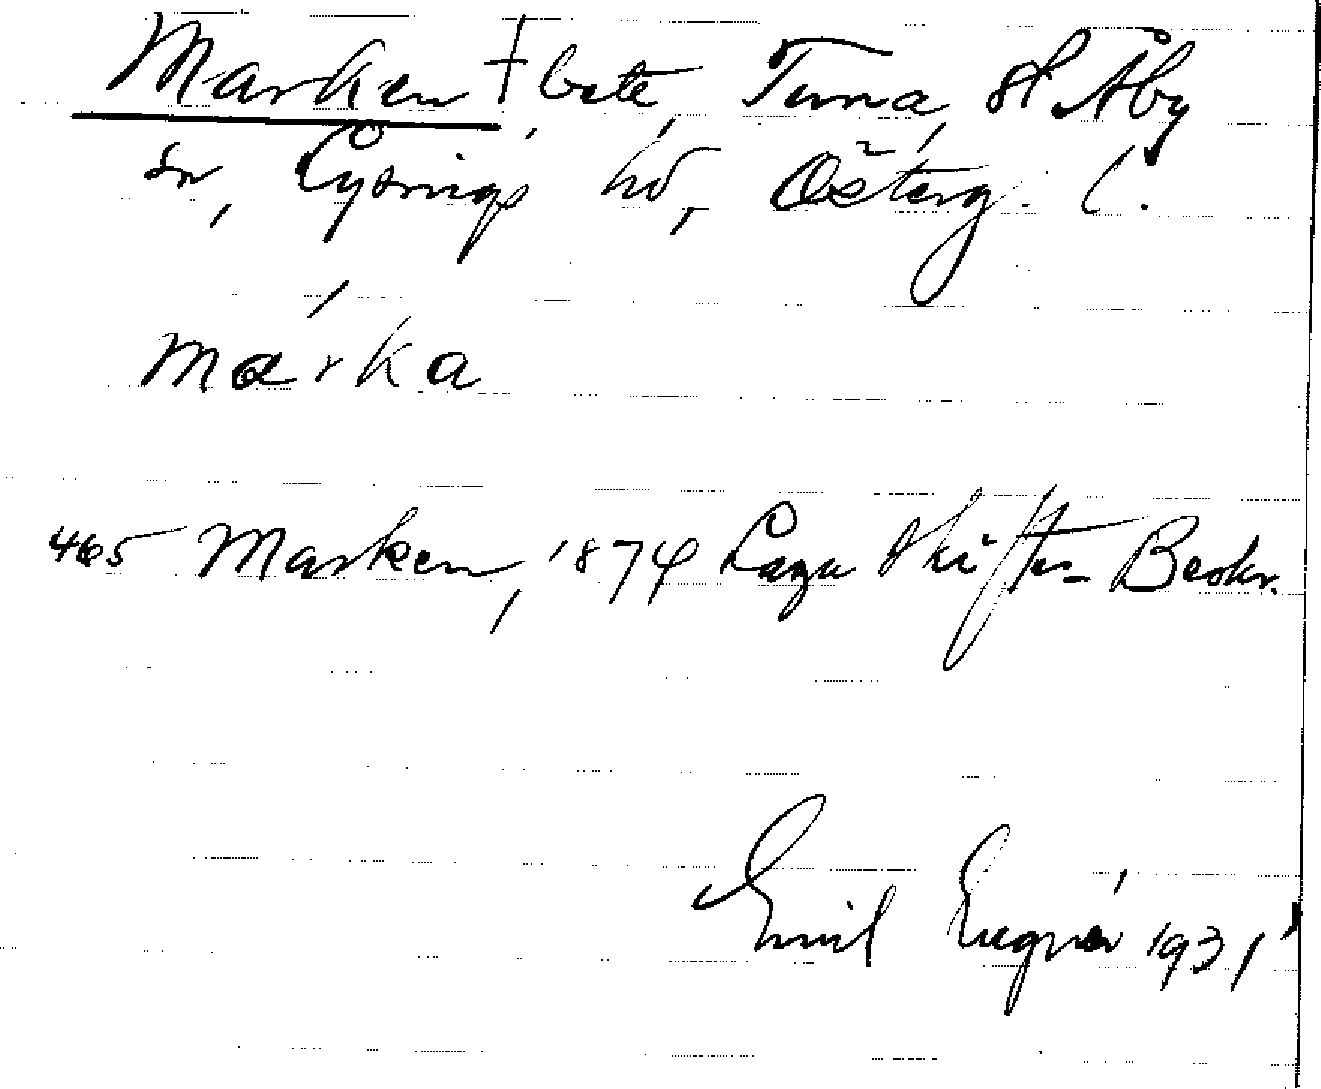 Marken † bete, Tuna, St. Åby
sn, Lysings hd, Österg. l.
márka
465 Marken, 1874 Laga skiftes Beskr.
Emil 1931